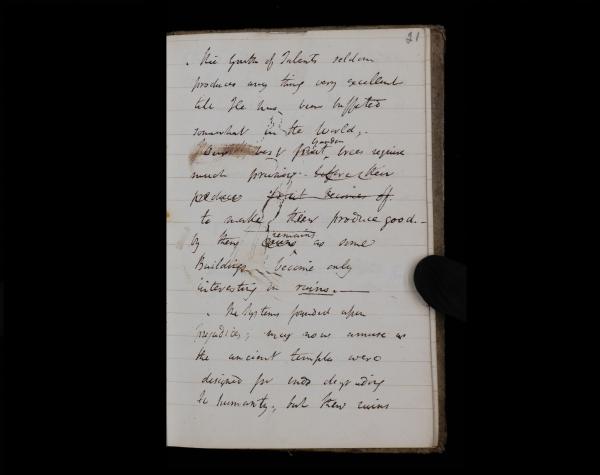 21
. The Youth of Talents seldom
produces any thing very excellent
till He has been buffeted
somewhat in the World,.
best fruit trees require
Garden
much pruning - before their
produces fruit becomes of
to make them produce good -
remains
as some
Buildings become only
interesting in ruins. —
. The Systems founded upon
prejudices, may now amuse as
the ancient temples were
designed for ends degrading
to humanity, but their ruins